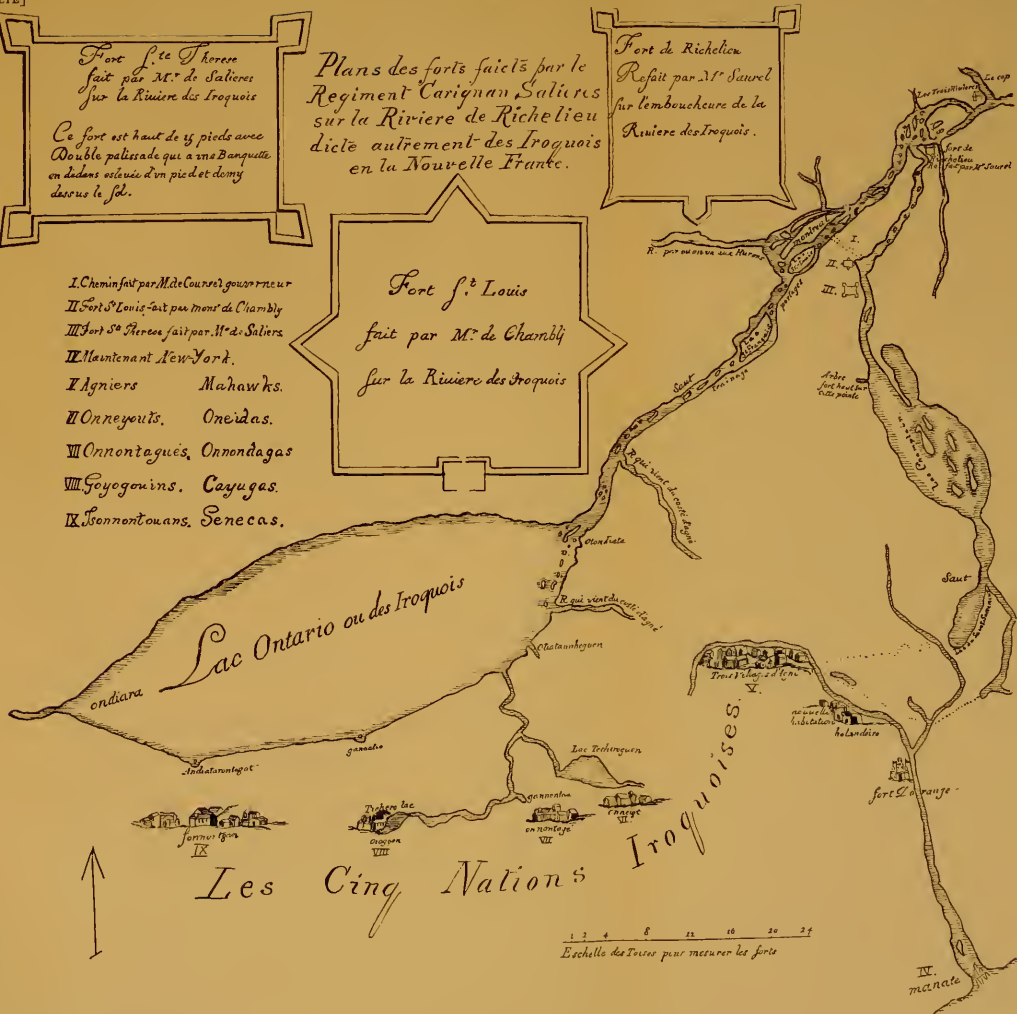 Fort S.te Therese
fait par M.r de Salieres
sur la Riuiere des Iroquois
Ce fort est haut de 15 pieds avec
Double palissade qui a vne Banquette
en dedens eslevée d'vn pied et demy
dessus le sol.
Plans des forts faicts par le
Regiment Carignan Salieres
sur la Riviere de Richelieu
dicte autrement des Iroquois
en la Nouvelle France.
Fort de Richelieu
Refait par Mr Saurel
sur l'emboucheure de la
Riuiere des Iroquois.
Fort S.t Louis
fait par Mr de Chamblÿ
sur la Riuiere des Iroquois
I. Chemin fait par M. de Coursel gouverneur
II Fort St Louis fait par monsr de Chambly
III Fort Ste Therese fait par Mr de Saliers
IV Maintenant New-York.
V Agniers Mahawks.
VI Onneyouts. Oneidas.
VII Onnontagues, Onnondagas
VIII. Goyogouins. Cayugas.
IX Tsonnontouans. Senecas.
Le cap
Les Trois Rivieres
fort de
Richelieu
Refait par Mr Saurel
montreal
R. par ou on va aux Hurons
I.
II.
III.
portages
Lac
St francois
Saut
trainage
Arbre
fort haut sur
cette pointe
Lac Champlain
R qui vient du costé d'agné
Otondiata
R qui vient du costé d'agné
Saut
Lac Ontario ou des Iroquois
ondiara
Andiatarontogat
Trois Vilages d'
V.
nouvelle
habitation
holandeise
fort D'orange
Lac Techeroguen
Tichero lac
VIII
onnontagé
VII
VI
IX
Les Cinq Nations Iroquoises
1 2 4 8 12 16 20 24
Eschelle des Toises pour mesurer les forts
IV.
manate